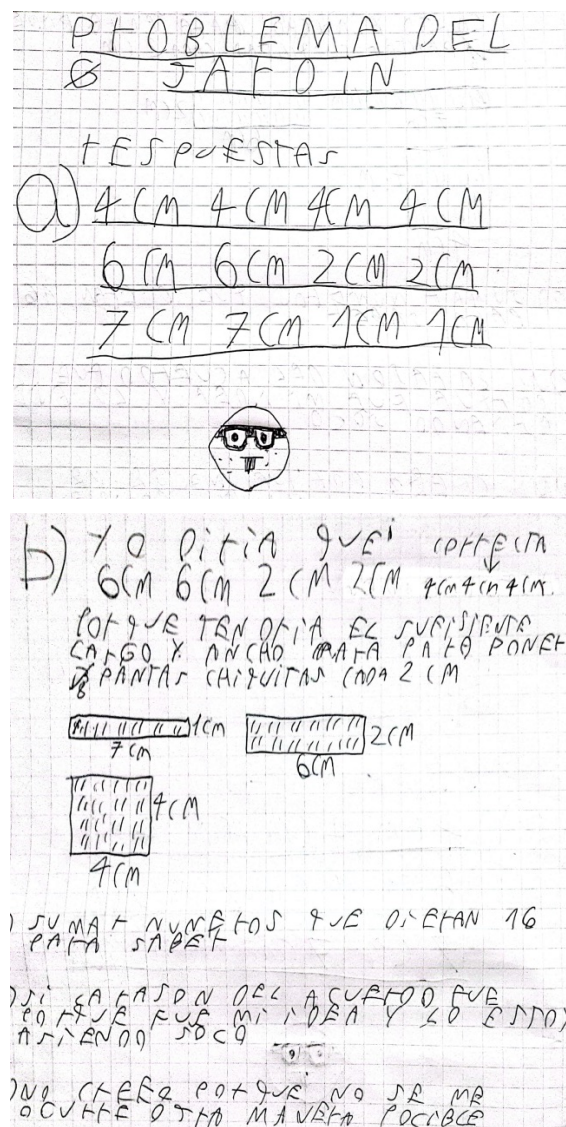 PrOBLEMA DEL
JArDiN
rESPUESTAS
a) 4 CM 4 CM 4CM 4 CM
6 CM 6 CM 2 CM 2 CM
7 CM 7 CM 1 CM 1 CM
b) YO DiriA QUE COrrECTA
6CM 6 CM 2 CM 2CM 4CM 4CM 4CM.
POrQUE TENDriA EL SUFISIENTE
LArGO Y ANCHO PArA PONEr
8 PANTAS CHIQUITAS CADA 2 CM
1CM
7 CM
2CM
6CM
4CM
4CM
) SUMAr NUMErOS QUE DiErAN 16
PArA SABEr
) Si LA rASON DEL ACUErDO FUE
POrQUE FUE Mi iDEA Y LO ESTOY
ASiENDO SOLO
) NO CrEEr POrQUE NO SE ME
OCUrrE OTrA MANErA POCIBLE